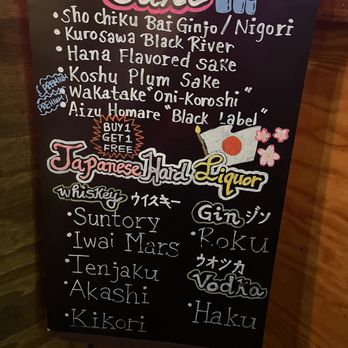 Sake
•Sho chiku Bai Ginjo/Nigori
•Kurosawa Black River
•Hana Flavored Sake
•Koshu Plum Sake
PREMIUM •Wakatake "Oni-Koroshi"
PREMIUM •Aizu Homare "Black Label"
BUY 1
GET 1
FREE
Japanese Hard Liquor
Whiskey ウイスキー
•Suntory
•Iwai Mars
•Tenjaku
•Akashi
•Kikori
Gin ジン
•Roku
ウオッカ
Vodka
•Haku